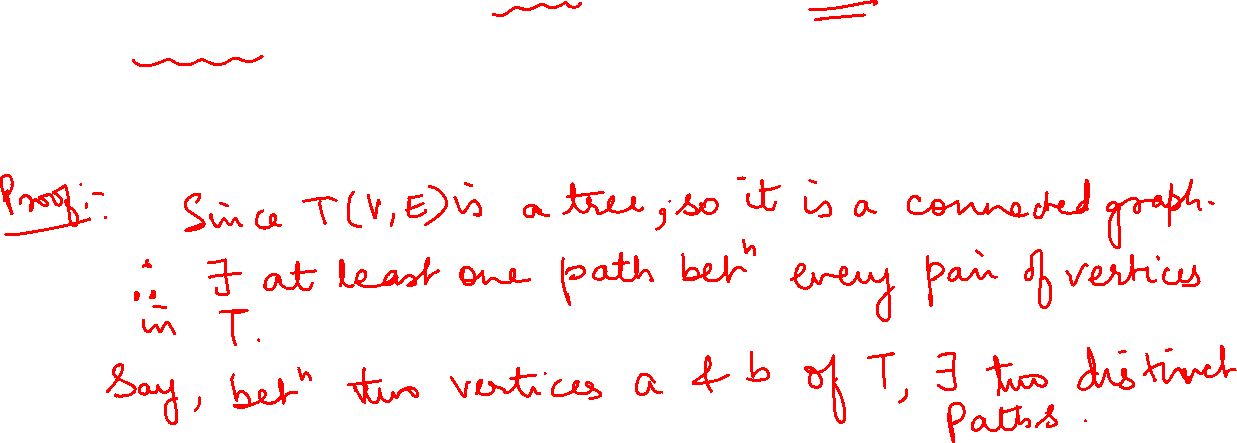 Proof:- Since T(V,E) is a tree, so it is a connected graph.
∴ ∃ at least one path betⁿ every pair of vertices
in T.
Say, betⁿ two vertices a & b of T, ∃ two distinct
Paths.